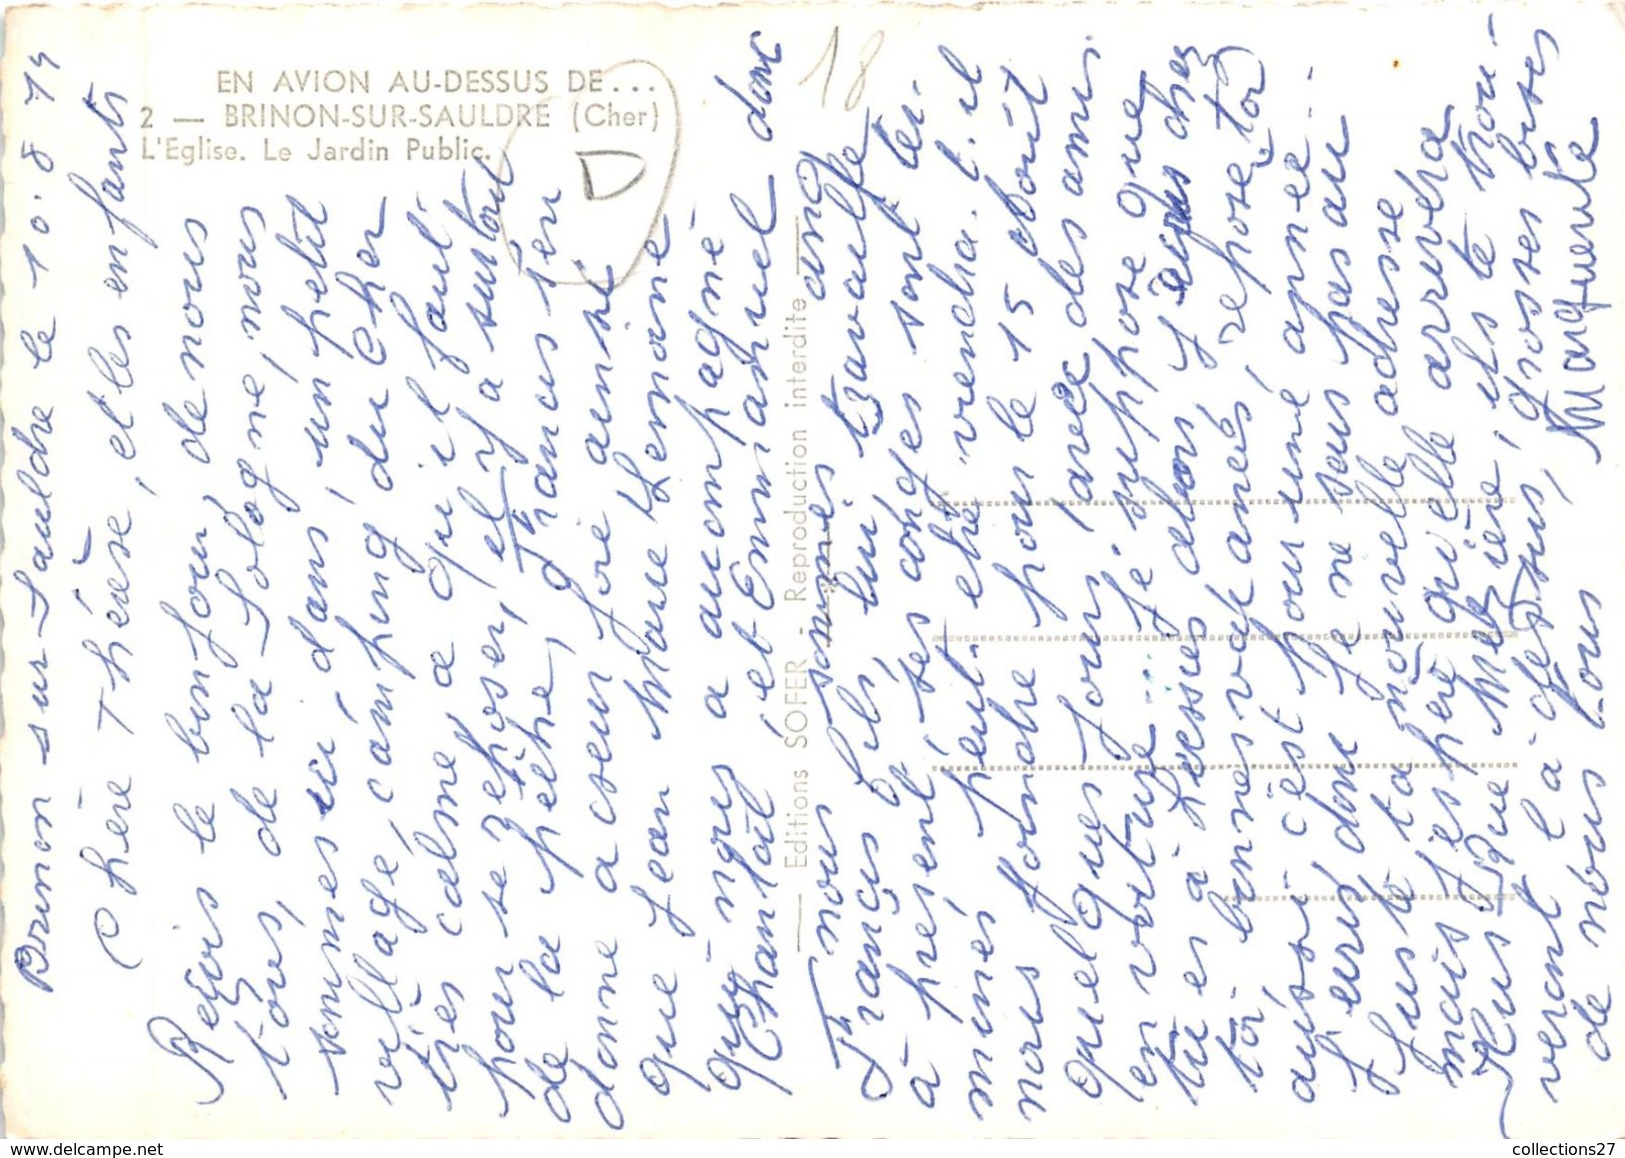 EN AVION AU-DESSUS DE...
2 — BRINON-SUR-SAULDRE (Cher)
L'Eglise. Le Jardin Public.
D
18
Editions SOFER - Reproduction interdite
Brinon sur Sauldre le 10.8.74
Chère Thérèse, et les enfants
Reçois le bonjour, de nous
tous, de la Sologne, nous
sommes ici, dans, un petit
village, camping du Cher
très calme, a qui il faut
pour se reposer, et y a surtout
de la pêche, Francis s'en
donne a coeur joie aussi
que Jean Marie Lemoine
qui nous a accompagné
Chantal, et Emmanuel donc
nous sommes cinq
François fils, lui travaille
à présent, ses congés sont ter-
minés peut-etre viendra-t-il
nous joindre pour le 15 Aout
quelques jours, avec des amis
en voiture... Je suppose que
tu es à
toi, bonnes vacances, repose toi
aussi c'est pour une année...
Juste ta nouvelle adresse
mais j'espère qu'elle arrivera
veront là dessus, grosses bises
de nous tous Marguerite
collections27